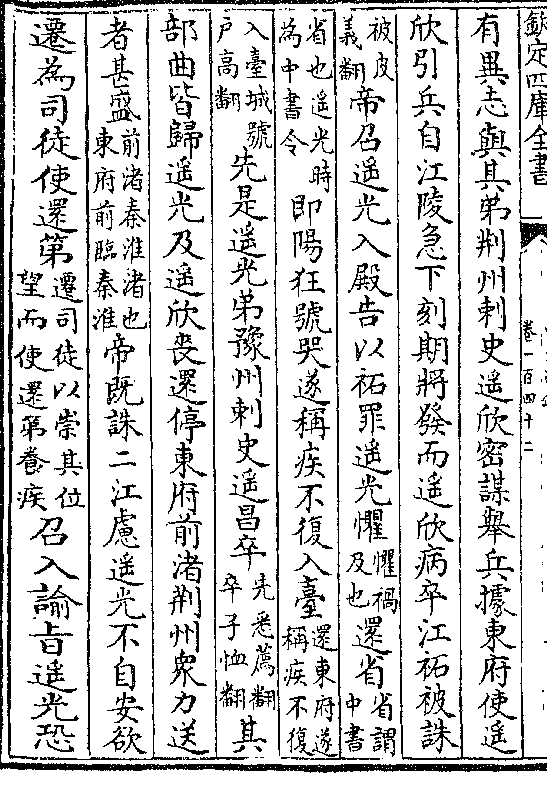 欽定四庫全書
卷一百四十二
有異志與其弟荆州刺史遥欣密謀舉兵據東府使遥
欣引兵自江陵急下刻期將發而遥欣病卒江祏被誅
被皮義翻帝召遥光入殿告以祏罪遥光懼懼禍及也還省省謂中書
省也遥光時為中書令即陽狂號哭遂稱疾不復入臺還東府遂稱疾不復
入臺城號户高翻先是遥光弟豫州刺史遥昌卒先悉薦翻卒子恤翻其
部曲皆歸遥光及遥欣喪還停東府前渚荆州衆力送
者甚盛前渚秦淮渚也東府前臨秦淮帝既誅二江慮遥光不自安欲
遷為司徒使還第遷司徒以崇其位望而使還第養疾召入諭㫖遥光恐